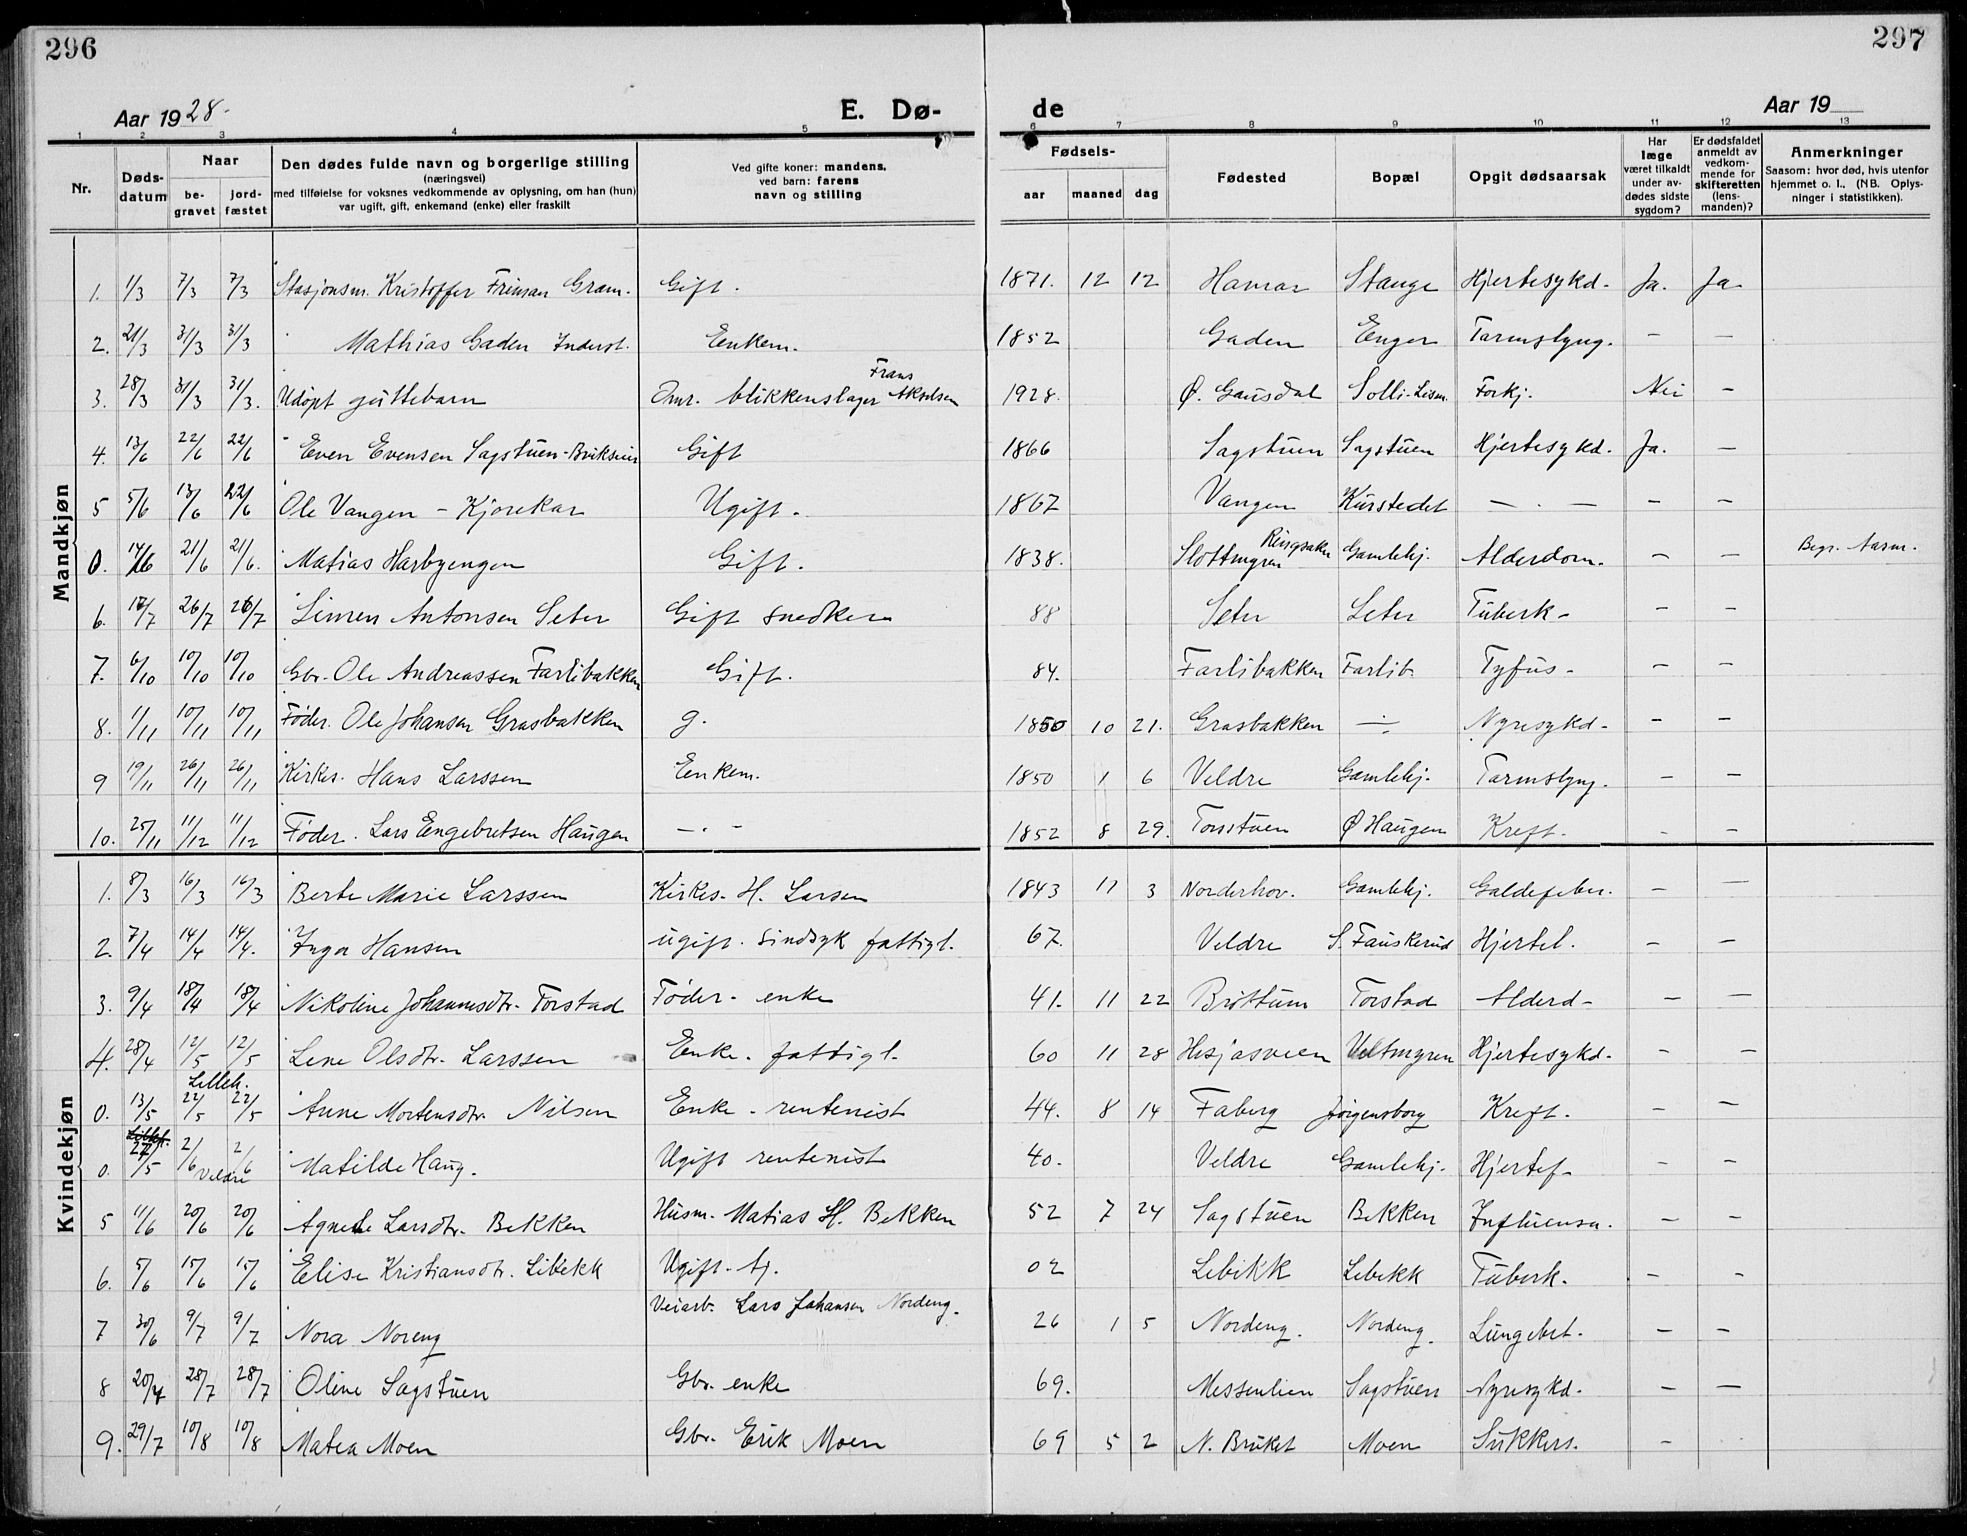 296
297
Aar 1928.
E. Dø-
de
Aar 19
1 2 3 4 5 6 7 8 9 10 11 12 13
Nr.
Døds-
datum
Naar
be-
gravet
jord-
fæstet
Den dødes fulde navn og borgerlige stilling
(næringsvei)
med tilføielse for voksnes vedkommende av oplysning, om han (hun)
var ugift, gift, enkemand (enke) eller fraskilt
Ved gifte koner: mandens,
ved barn: farens
navn og stilling
Fødsels-
aar maaned dag
Fødested
Bopæl
Opgit dødsaarsak
Har
læge
været tilkaldt
under av-
dødes sidste
sygdom?
Er dødsfaldet
anmeldt av
vedkom-
mende for
skifteretten
(lens-
manden)?
Anmerkninger
Saasom: hvor død, hvis utenfor
hjemmet o. l., (NB. Oplys-
ninger i statistikken).
Mandkjøn
1. 1/3 7/3 7/3 Stasjonsm. Kristoffer Friman Gram. Gift. 1871. 12 12 Hamar Stange Hjertesykd. Ja. Ja
2. 21/3 31/3 31/3 Mathias Gaden Enkem. 1852 Gaden Enger Tarmslyng. — —
Frans
3. 28/3 31/3 31/3. Udøpt guttebarn Omr. blikkenslager Akselsen 1928. Ø. Gausdal Solli- Forkj. Nei —
4. 13/6 22/6 22/6 Even Evensen Sagstuen- Gift 1866 Sagstuen Sagstuen Hjertesykd. Ja. —
5 5/6 13/6 22/6 Ole Vangen - Kjørekar Ugift. 1867 Vangen Kurstedet — . — — —
Ringsaker
0. 14/6 21/6 21/6. Matias Harbyengen Gift. 1838. Slottmyren Gamlehj. Alderdom. — — Begr. Aasm.
6. 17/7 26/7 26/7 Simen Antonsen Seter Gift snedker 88 Seter Seter Tuberk- — —
7. 6/10 10/10 10/10 Gbr. Ole Andreassen Farlibakken Gift. 84. Farlibakken Farlib. Tyfus- — —
8. 1/11 10/11 10/11 Føder. Ole Johansen Grasbakken g. 1850 10 21. Grasbakken — Nyresykd- — —
9 19/11 26/11 26/11 Kirkes. Hans Larssen Enkem. 1850 1 6 Veldre Gamlehj. Tarmslyng. — —
10. 25/11 11/12 11/12 Føder. Lars Engebretsen Haugen —.— 1852 8 29. Torsstuen Ø Haugen Kreft. — —
Kvindekjøn
1. 8/3 16/3 16/3 Berte Marie Larssen Kirkes. H. Larsen 1843 11 3 Norderhov. Gamlehj. Galdefeber. — —
2. 7/4 14/4 14/4. Inga Hansen ugift. sindsyk fattigl. 67. Veldre S. Fauskerud Hjertel. — —
3. 9/4 18/4 18/4 Nikoline Johannesdtr. Torstad Føder- enke 41. 11 22 Brøttum Torstad Alderd- — —
4. 28/4 12/5 12/5 Lene Olsdtr. Larssen Enke. fattigl. 60 11 28 Hesjasveen Veltmyren Hjertesykd. — —
Lilleh.
0. 13/5 22/5 22/5 Anne Mortensdtr. Nilsen Enke - rentenist 44. 8 14 Faberg Jørgensborg Kreft. — —
0. 27/5 2/6 2/6 Matilde Haug. Ugift rentenist 40. Veldre Gamlehj. Hjertef- — —
Veldre
5 11/6 20/6 20/6 Agnete Larsdtr. Bekken Husm. Matias H. Bekken 52 7 24 Sagstuen Bekken Influensa. — —
6. 5/6 15/6 15/6 Elise Kristiansdtr. Libekk Ugift. tj. 02 Lebekk Lebekk Tuberk. — -
7 30/6 9/7 9/7 Nora Noreng Veiarb. Lars Johansen Nordeng. 26 1 5 Nordeng. Nordeng. Lungebet. — —
8 20/7 28/7 28/7 Oline Sagstuen Gbr. enke 69. Messenlien Sagstuen Nyresykd. — —
9. 29/7 10/8 10/8 Matea Moen Gbr. Erik Moen 69 5 2 N. Bruket Moen Sukkers. —